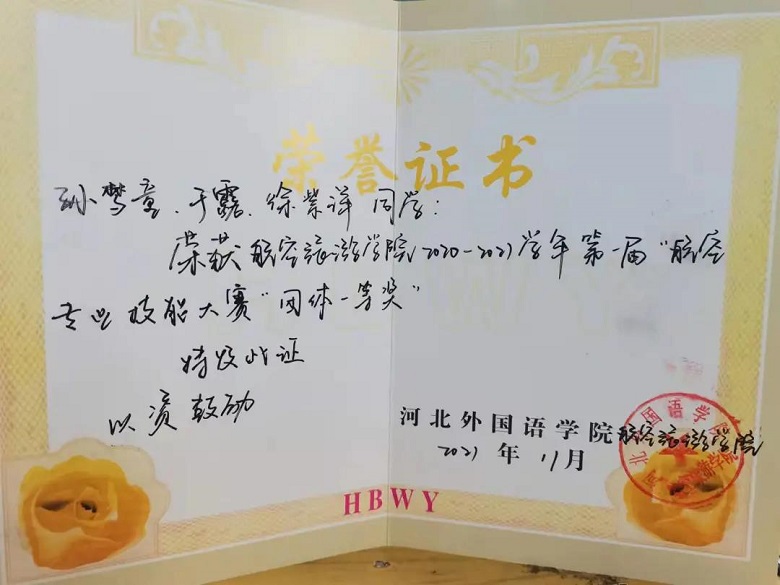 荣誉证书
孙梦童、于露、徐紫洋 同学:
荣获航空旅游学院2020-2021学年第一届“航空
专业技能大赛“团体一等奖”
特发此证
以资鼓励
河北外国语学院航空旅游学院
2021年11月
HBWY